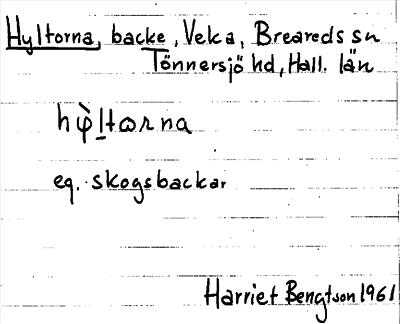 Hyltorna, backe, Veka, Breareds sn
Tönnersjö hd, Hall. län
hφ̀l̲tωrna
eg. skogsbackar
Harriet Bengtson 1961